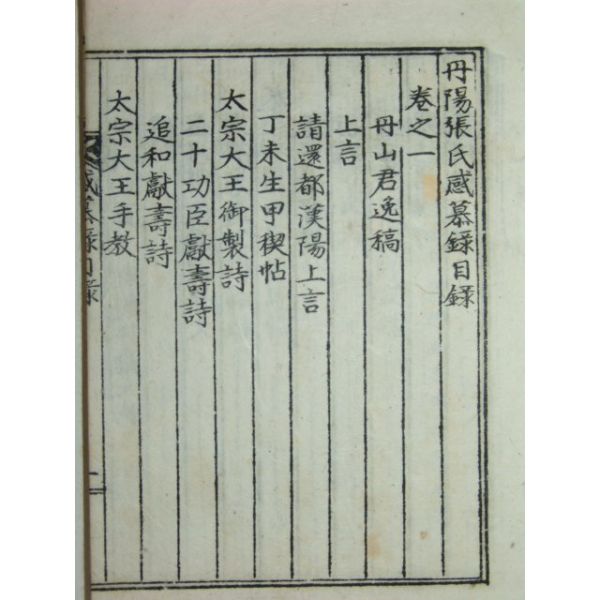 丹陽張氏感慕錄目錄
卷之一
丹山君逸稿
上言
請還都漢陽上言
丁未生甲稧帖
太宗大王御製詩
二十功臣獻壽詩
追和獻壽詩
太宗大王手教
感慕錄目錄
一